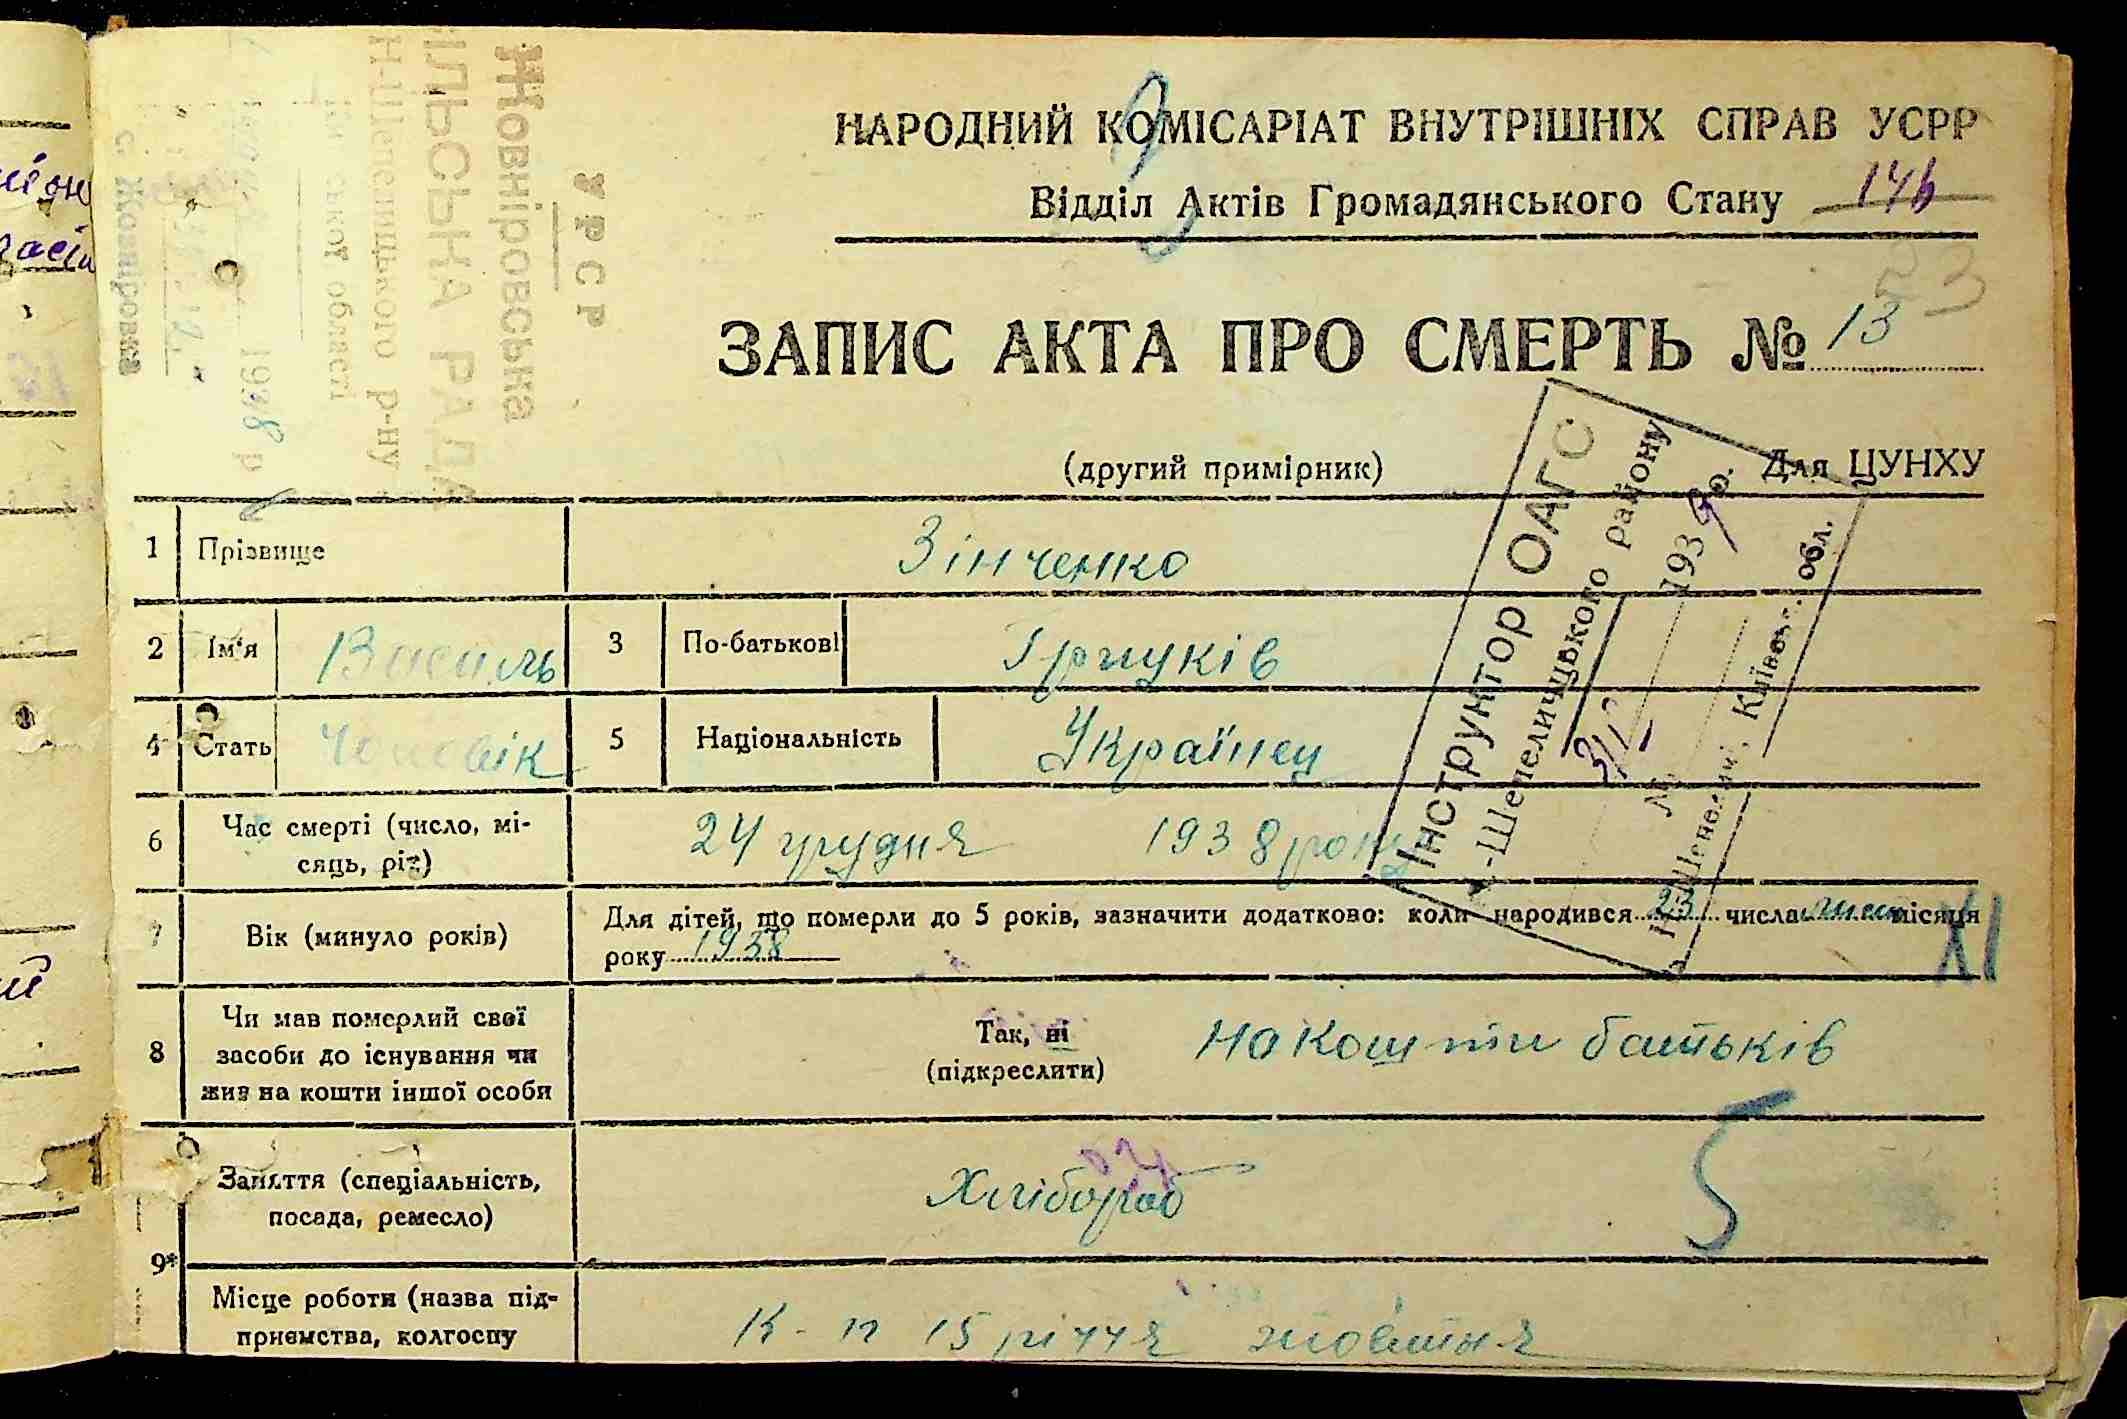 УРСР
Жовніровська
ІЛЬСЬКА РАДА
Н-Шепелицького р-ну
ської області
1938 р
с. Жовніровка
НАРОДНИЙ КОМІСАРІАТ ВНУТРІШНІХ СПРАВ УСРР
Відділ Актів Громадянського Стану 146
23
ЗАПИС АКТА ПРО СМЕРТЬ № 13
(другий примірник) Для ЦУНХУ
Інструктор ОАГС
Н-Шепелицького району
193 9 р.
№
Н-Шепеличі, Київськ. обл.
1 Прізвище Зінченко
2 Ім'я Василь 3 По-батькові Грицків
4 Стать Чоловік 5 Національність Українец
6 Час смерті (число, мі-
сяць, рік) 24 грудня 1938 року
7 Вік (минуло років) Для дітей, що померли до 5 років, зазначити додатково: коли народився 23 числа місяця
року 1938
XI
8 Чи мав померлий свої
засоби до існування чи
жив на кошти іншої особи
Так, ні
(підкреслити)
На кошти батьків
5
9* Заняття (спеціальність,
посада, ремесло) Хлібороб
Місце роботи (назва під-
приємства, колгоспу К-п 15 річчя жовтня